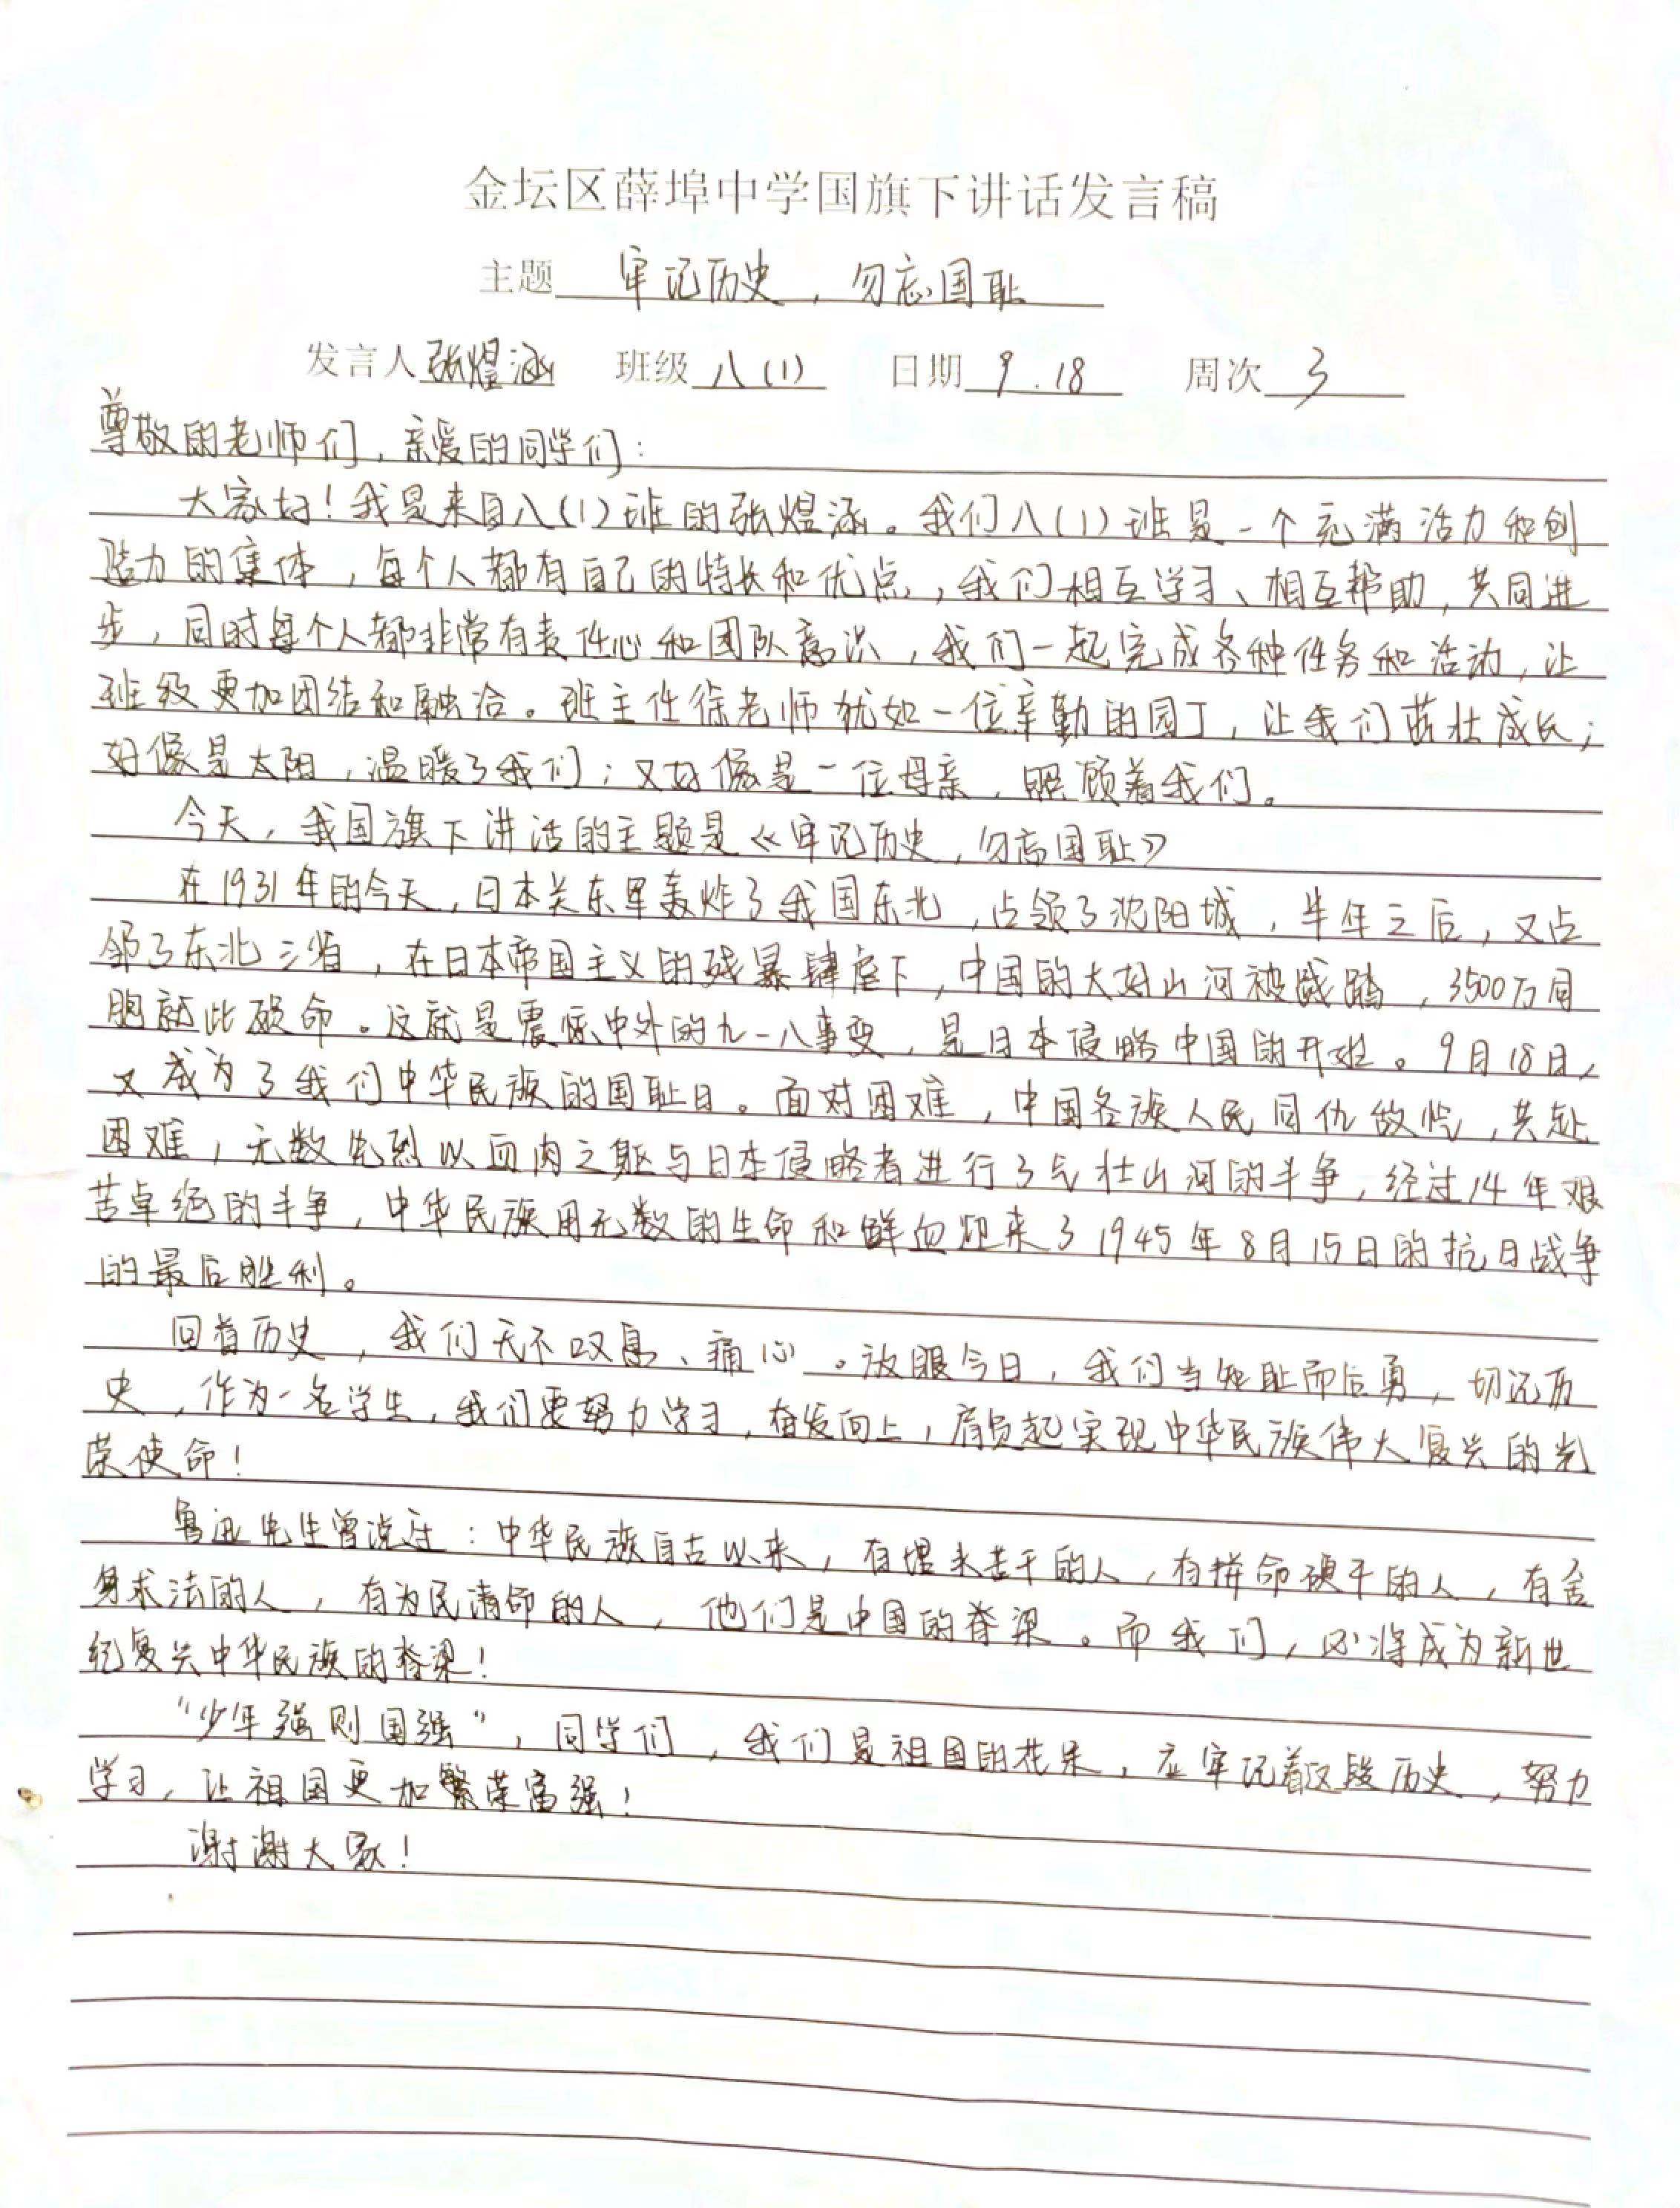 金坛区薛埠中学国旗下讲话发言稿
主题 牢记历史，勿忘国耻
发言人 张煜涵 班级 八(1) 日期 9.18 周次 3
尊敬的老师们，亲爱的同学们：
大家好！我是来自八(1)班的张煜涵。我们八(1)班是一个充满活力和创
造力的集体，每个人都有自己的特长和优点，我们相互学习、相互帮助，共同进
步，同时每个人都非常有责任心和团队意识，我们一起完成各种任务和活动，让
班级更加团结和融洽。班主任徐老师犹如一位辛勤的园丁，让我们茁壮成长；
好像是太阳，温暖了我们；又好像是一位母亲，照顾着我们。
今天，我国旗下讲话的主题是《牢记历史，勿忘国耻》
在1931年的今天，日本关东军轰炸了我国东北，占领了沈阳城，半年之后，又占
领了东北三省，在日本帝国主义的残暴肆虐下，中国的大好山河被践踏，3500万同
胞就此殒命。这就是震惊中外的九一八事变，是日本侵略中国的开始。9月18日，
又成为了我们中华民族的国耻日。面对困难，中国各族人民同仇敌忾，共赴
困难，无数先烈以血肉之躯与日本侵略者进行了气壮山河的斗争，经过14年艰
苦卓绝的斗争，中华民族用无数的生命和鲜血迎来了1945年8月15日的抗日战争
的最后胜利。
回首历史，我们无不叹息、痛心。放眼今日，我们当知耻而后勇，切记历
史，作为一名学生，我们要努力学习，奋发向上，肩负起实现中华民族伟大复兴的光
荣使命！
鲁迅先生曾说过：中华民族自古以来，有埋头苦干的人，有拼命硬干的人，有舍
身求法的人，有为民请命的人，他们是中国的脊梁。而我们，必将成为新世
纪复兴中华民族的脊梁！
“少年强则国强”，同学们，我们是祖国的花朵，应牢记着这段历史，努力
学习，让祖国更加繁荣富强！
谢谢大家！